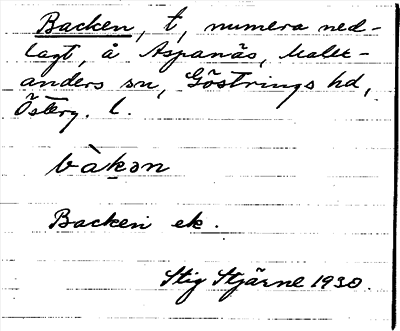 Backen, t, numera ned-
lagt, å Aspanäs, Malex-
anders sn, Göstrings hd,
Österg. l.
bàkən
Backen ek.
Stig Stjärne 1930.